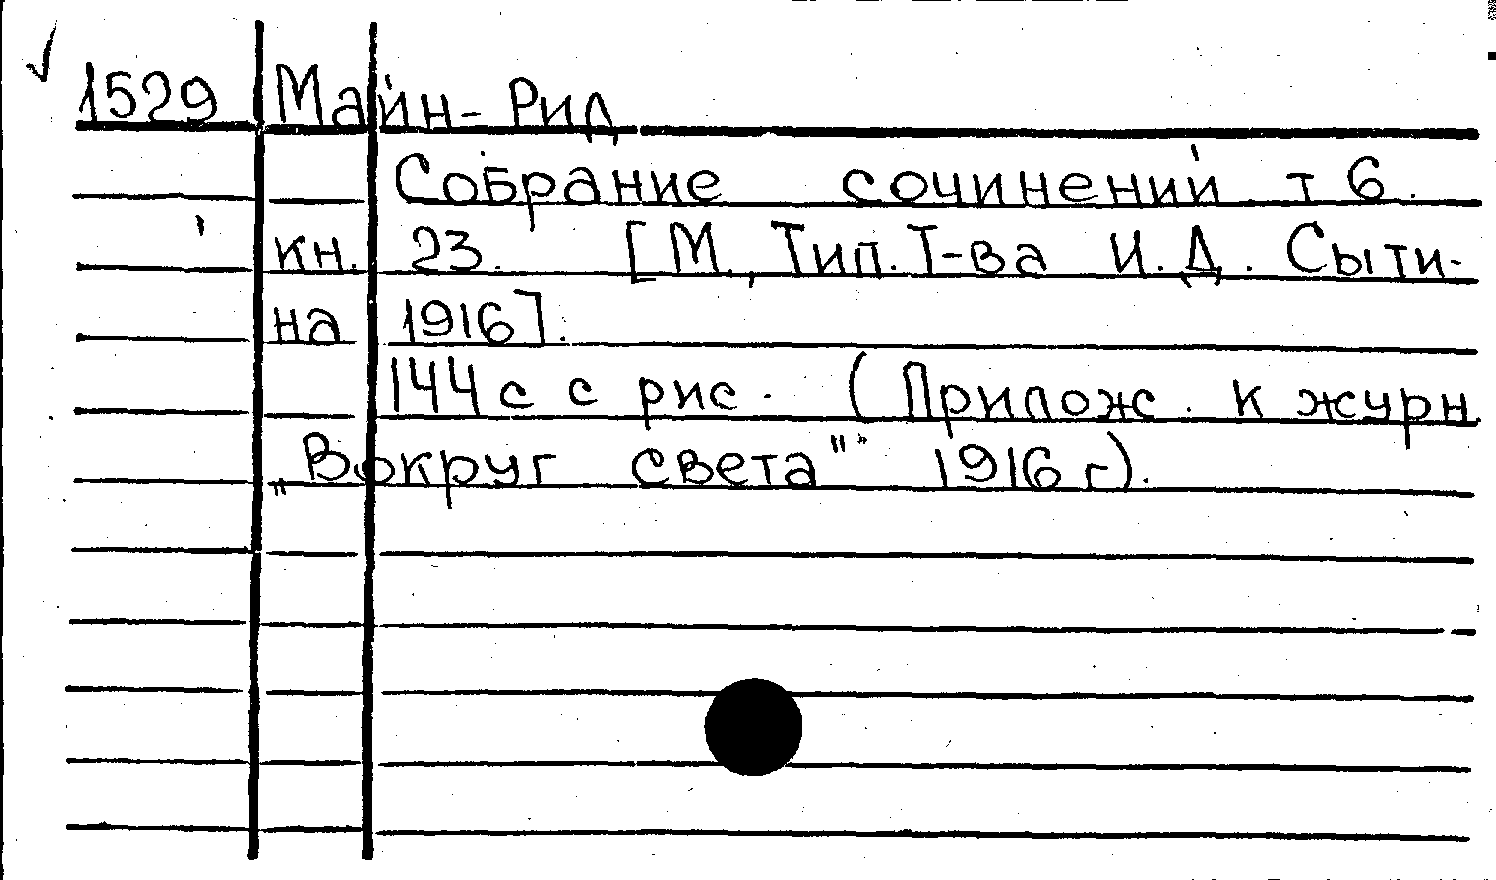 ✓ 1529 Майн-Рид
Собрание сочинений т 6.
кн. 23. [М., Тип. Т-ва И. Д. Сыти-
на 1916].
144 с с рис. (Прилож. к журн.
„Вокруг света" 1916 г).